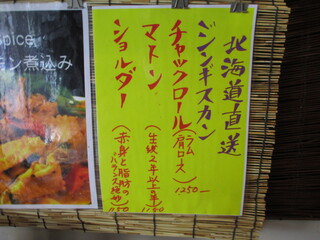 北海道直送
ジンギスカン
チャックロール(ラム肩ロース) 1250ー
マトン (生後2年以上の羊) 1150
ショルダー (赤身と脂肪のバランス絶妙) 1150
spice
煮込み